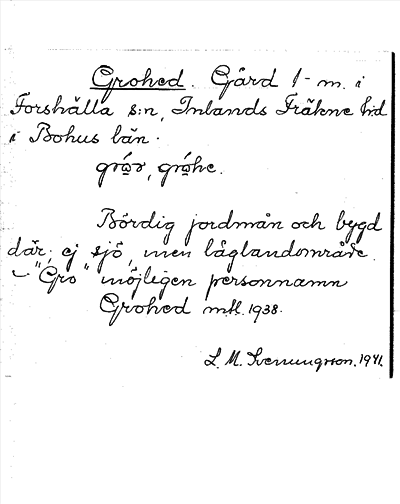 Grohed. Gård 1 - m. i
Forshälla s:n, Inlands Fräkne hd
i Bohus län.
gróhe.
Bördig jordmån och bygd
där; ej sjö, men låglandområde.
– "Gro" möjligen personnamn
Grohed mtl. 1938.
L. M. Svenungsson. 1941.